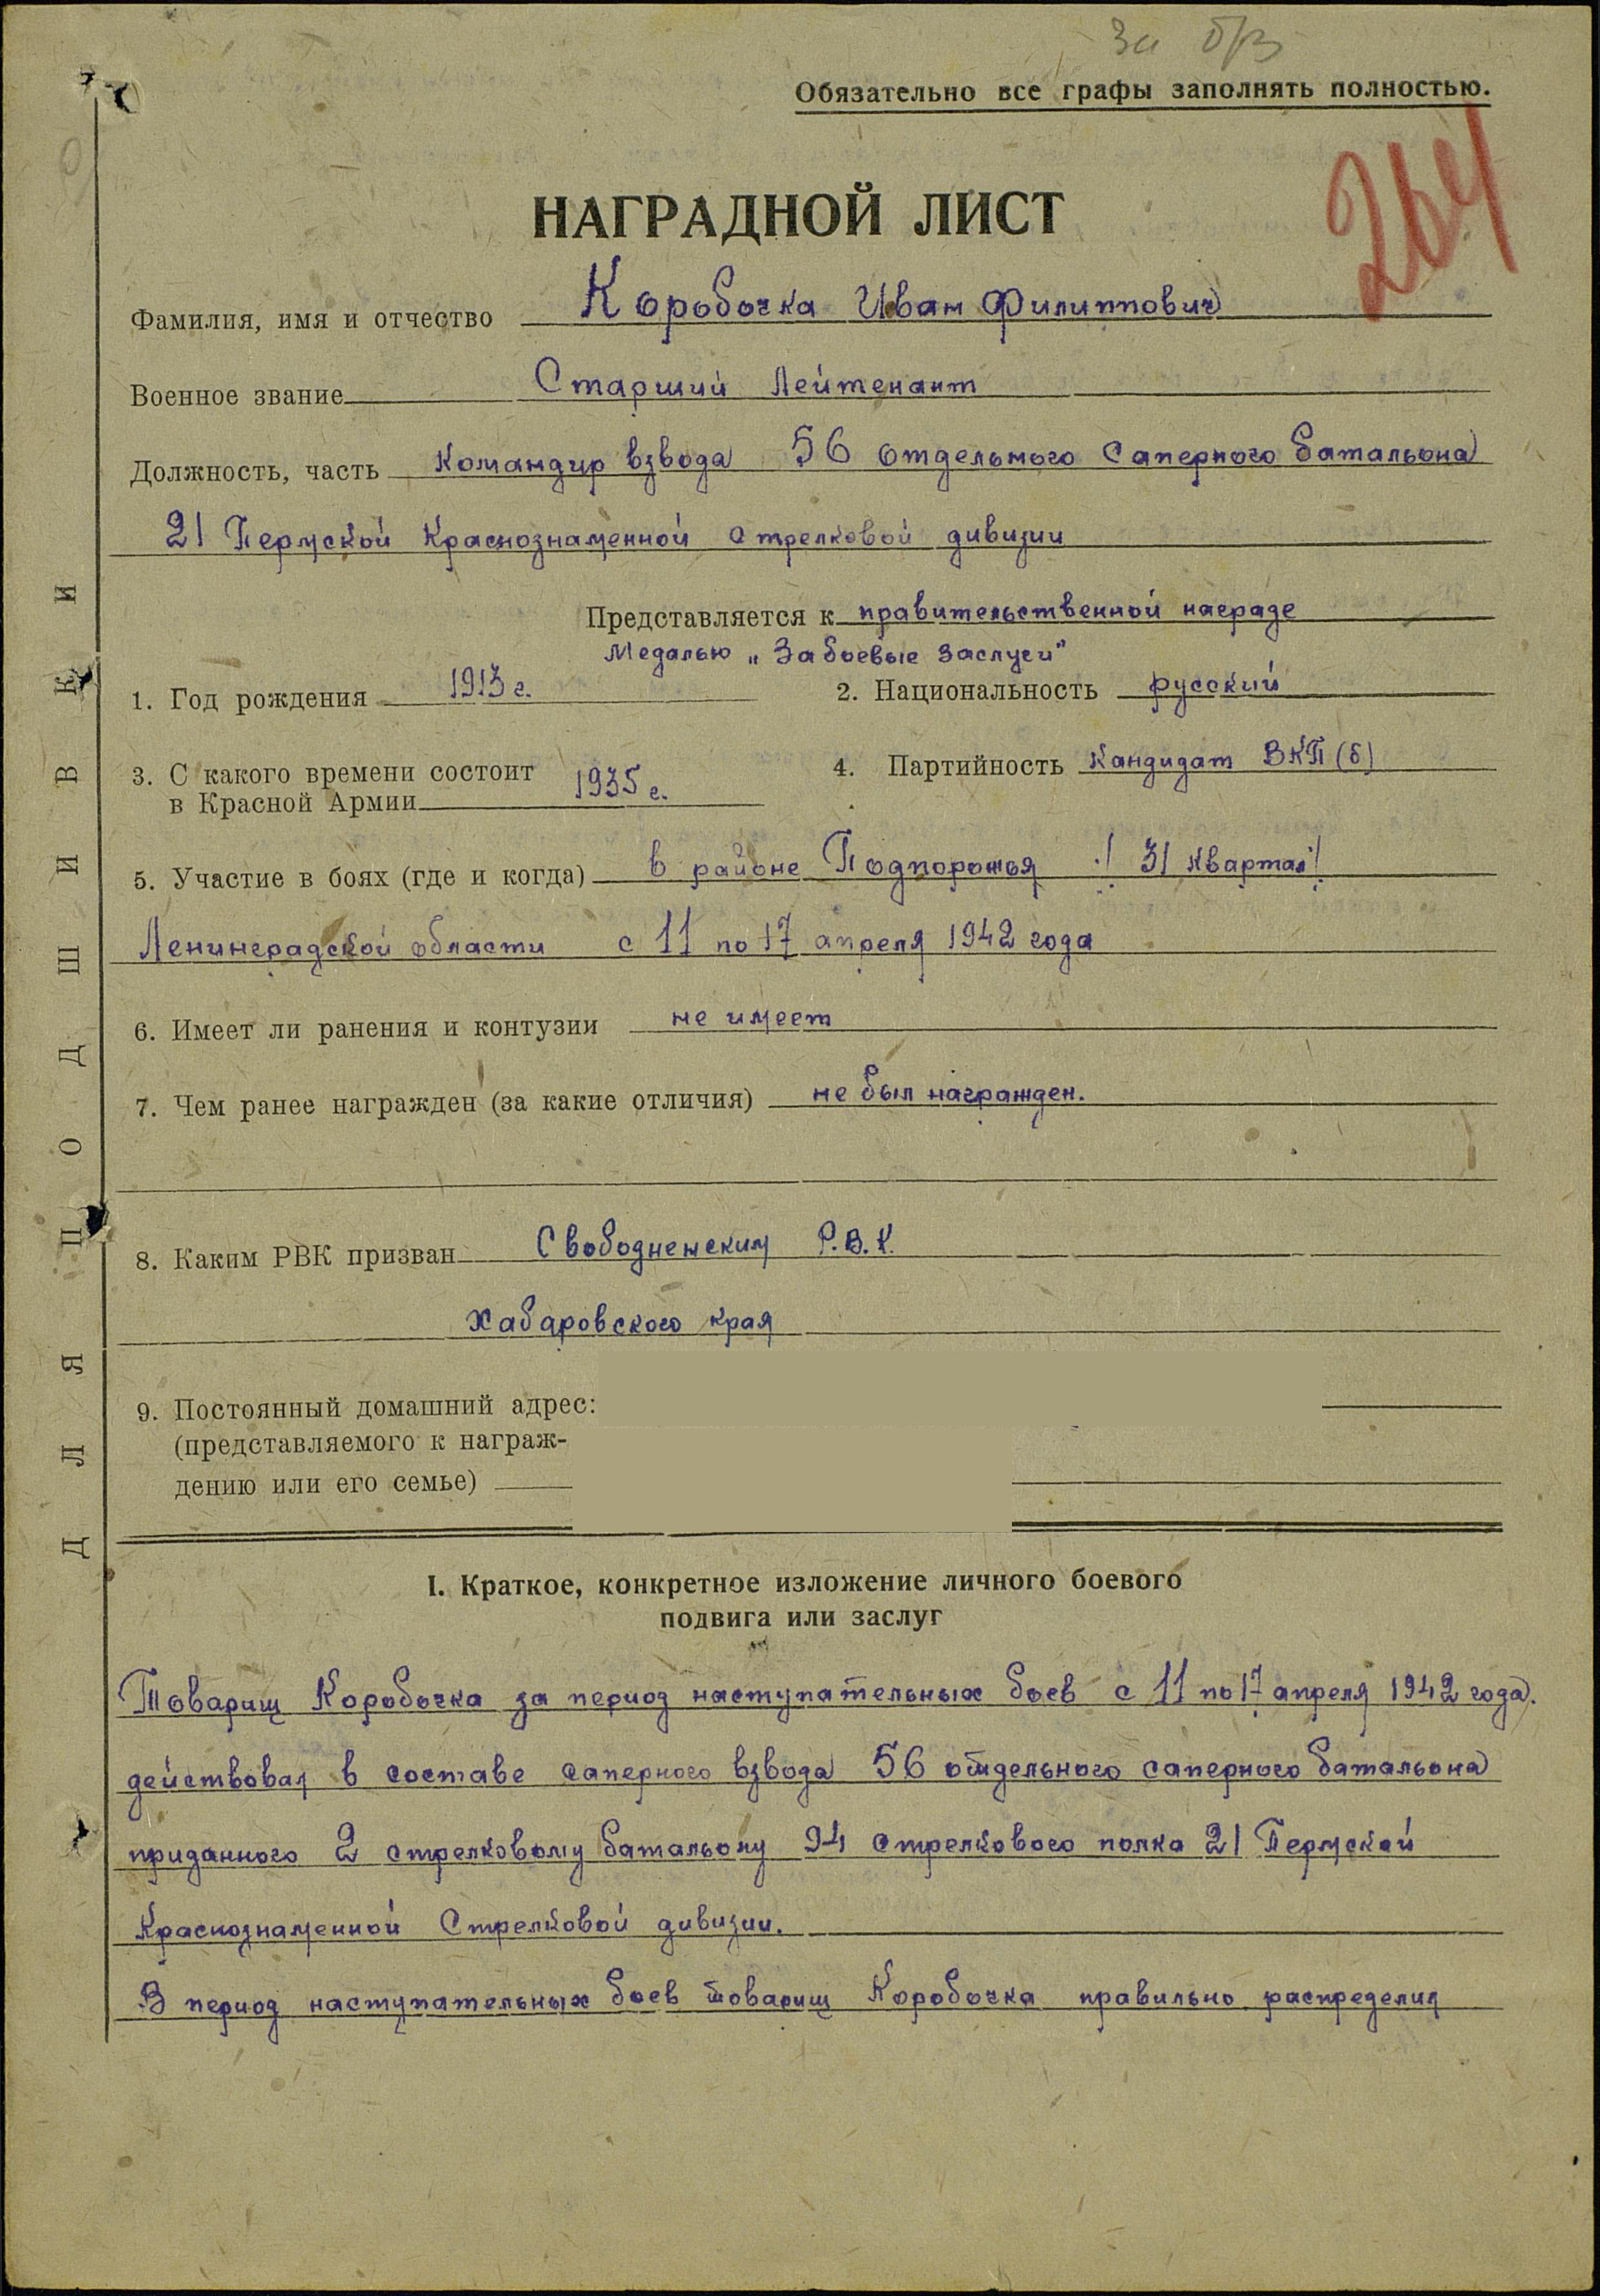 За
Обязательно все графы заполнять полностью.
264
НАГРАДНОЙ ЛИСТ
Фамилия, имя и отчество Коробочка Иван Филиппович
Военное звание Старший Лейтенант
Должность, часть Командир взвода 56 отдельного Саперного батальона
21 Пермской Краснознаменной стрелковой дивизии
Представляется к правительственной награде
Медалью „За боевые заслуги"
1. Год рождения 1913 г. 2. Национальность русский
3. С какого времени состоит в Красной Армии 1935 г. 4. Партийность Кандидат ВКП(б)
5. Участие в боях (где и когда) в районе Подпорожья 31 Квартал
Ленинградской области с 11 по 17 апреля 1942 года
6. Имеет ли ранения и контузии не имеет
7. Чем ранее награжден (за какие отличия) не был награжден.
8. Каким РВК призван Свободненским Р.В.К.
Хабаровского края
9. Постоянный домашний адрес:
(представляемого к награж-
дению или его семье)
I. Краткое, конкретное изложение личного боевого
подвига или заслуг
Товарищ Коробочка за период наступательных боев с 11 по 17 апреля 1942 года.
действовал в составе саперного взвода 56 отдельного саперного батальона
приданного 2 стрелковому батальону 94 стрелкового полка 21 Пермской
Краснознаменной Стрелковой дивизии.
В период наступательных боев товарищ Коробочка правильно распределил
ДЛЯ ПОДШИВКИ